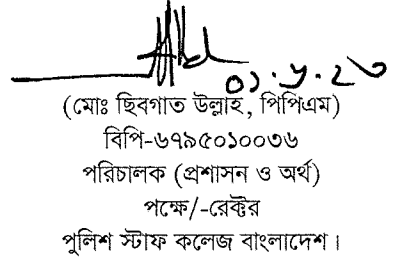 ০১.৮.২৩
(মোঃ ছিবগাত উল্লাহ, পিপিএম)
বিপি-৬৭৯৫০১০০৩৬
পরিচালক (প্রশাসন ও অর্থ)
পক্ষে/-রেক্টর
পুলিশ স্টাফ কলেজ বাংলাদেশ।